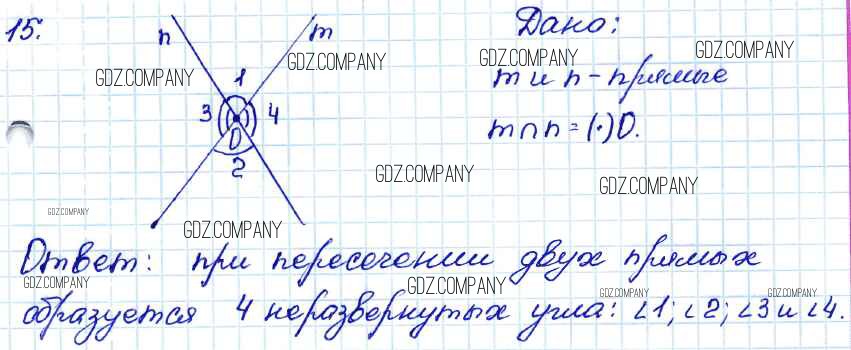 15.
n
m
1
3
4
O
2
Дано:
m и n - прямые
m ∩ n = (·)O.
GDZ.COMPANY
GDZ.COMPANY
GDZ.COMPANY
GDZ.COMPANY
GDZ.COMPANY
GDZ.COMPANY
GDZ.COMPANY
GDZ.COMPANY
Ответ: при пересечении двух прямых
GDZ.COMPANY
GDZ.COMPANY
GDZ.COMPANY
GDZ.COMPANY
образуется 4 неразвернутых угла: ∠1; ∠2; ∠3 и ∠4.